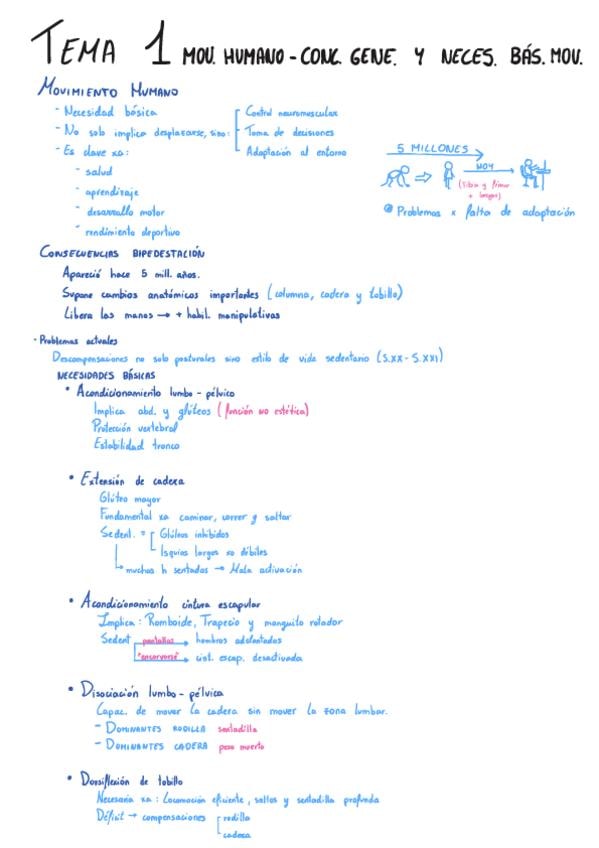 TEMA 1 MOV. HUMANO - CONC. GENE. Y NECES. BÁS. MOV.
MOVIMIENTO HUMANO
- Necesidad básica
- No solo implica desplazarse, sino:
Control neuromuscular
Toma de decisiones
Adaptación al entorno
- Es clave xa:
- salud
- aprendizaje
- desarrollo motor
- rendimiento deportivo
5 MILLONES
HOY
Problemas x falta de adaptación
CONSECUENCIAS BIPEDESTACIÓN
Apareció hace 5 mill. años.
Supone cambios anatómicos importantes (columna, cadera y tobillo)
Libera las manos → + habil. manipulativas
- Problemas actuales
Descompensaciones no solo posturales sino estilo de vida sedentario (S.XX - S.XXI)
NECESIDADES BÁSICAS
• Acondicionamiento lumbo-pélvico
Implica abd. y glúteos (función no estética)
Protección vertebral
Estabilidad tronco
• Extensión de cadera
Glúteo mayor
Fundamental xa caminar, correr y saltar
Sedent. =
Glúteos inhibidos
Isquios largos no débiles
muchas h sentados → Mala activación
• Acondicionamiento cintura escapular
Implica: Romboide, Trapecio y manguito rotador
Sedent pantallas → hombros adelantados
"encorvarse" → cint. escap. desactivada
• Disociación lumbo-pélvica
Capac. de mover la cadera sin mover la zona lumbar.
- DOMINANTES RODILLA sentadilla
- DOMINANTES CADERA peso muerto
• Dorsiflexión de tobillo
Necesaria xa: Locomoción eficiente, saltos y sentadilla profunda
Déficit → compensaciones
rodilla
cadera